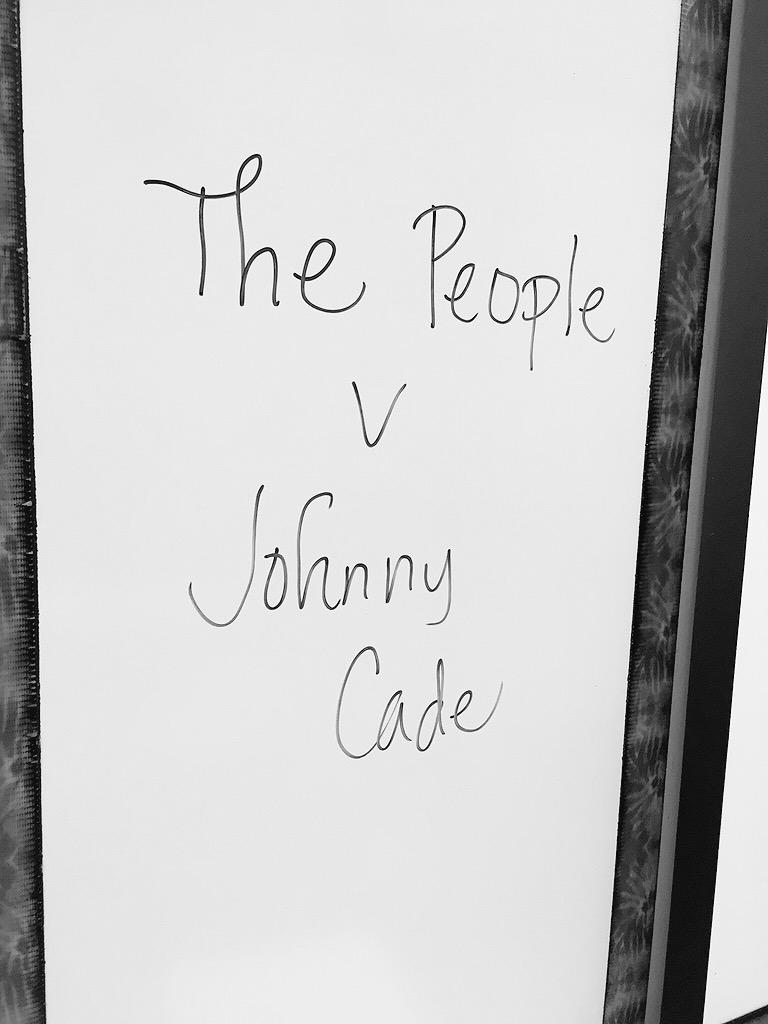 The People
v
Johnny
Cade